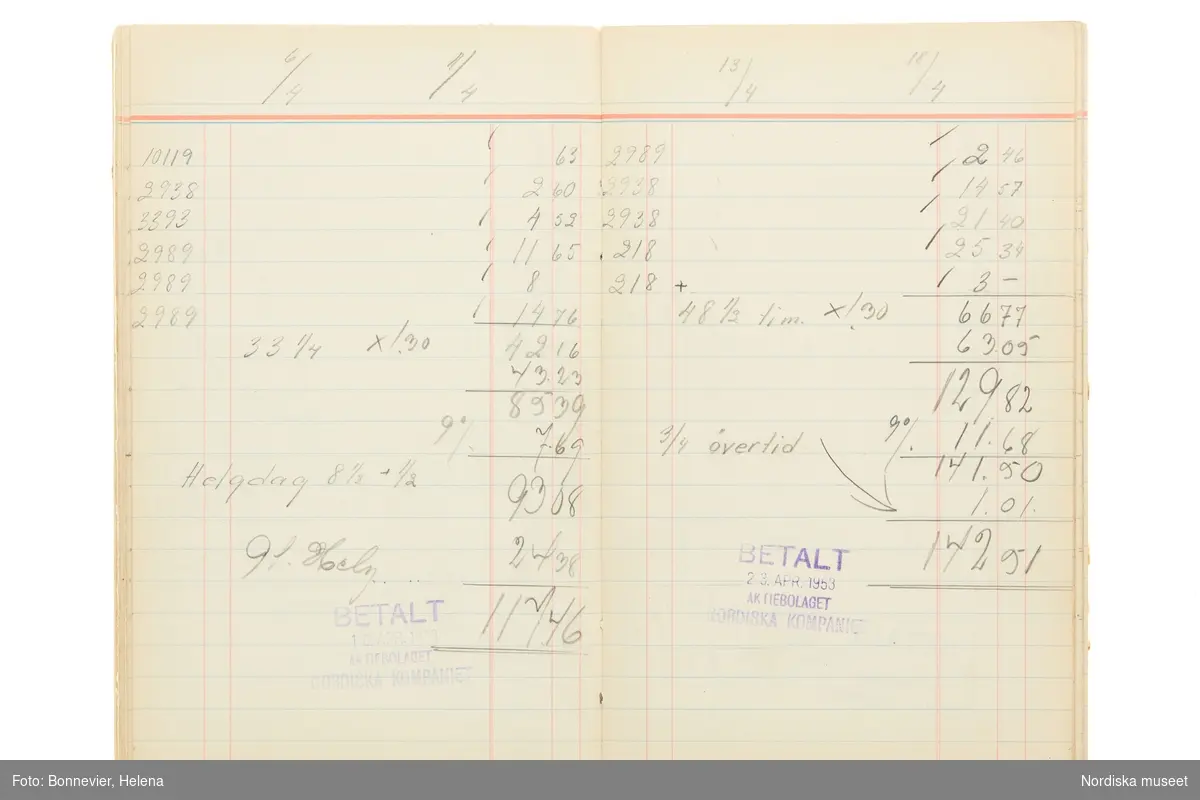 6/4 11/4
10119 63
2938 2 60
3393 4 52
2989 11 65
2989 8
2989 14 76
42 16
33 1/4 x 1.30 43.23
85 39
9% 7.69
Helgdag 8 1/2 + 1/2 93 08
Helg 24 38
117.46
BETALT
AKTIEBOLAGET
NORDISKA KOMPANIET
13/4 18/4
2989 2 46
2938 14 57
2938 21 40
218 25 34
218 + 3 –
66 77
48 1/2 tim. x 1.30 63.05
129 82
9% 11.68
141.50
3/4 övertid 1.01.
142 51
BETALT
23. APR. 1953
AKTIEBOLAGET
NORDISKA KOMPANIET
Foto: Bonnevier, Helena Nordiska museet